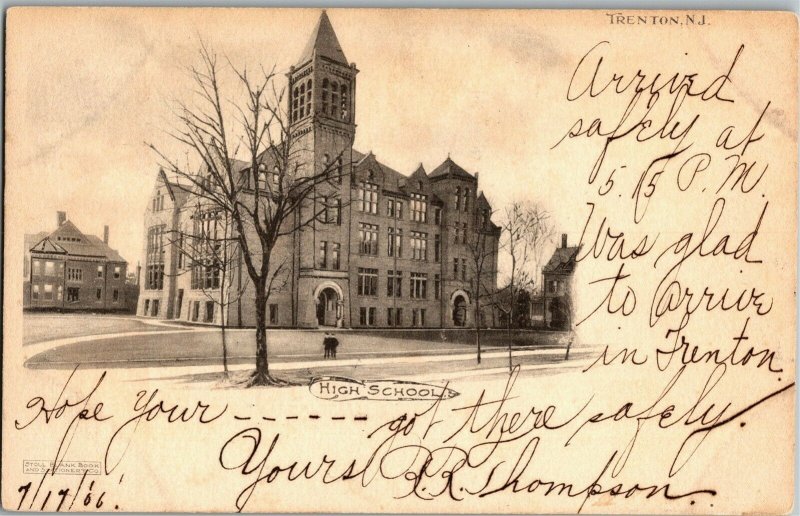 TRENTON, N.J.
Arrived
safely at
5.15 P.M.
Was glad
to arrive
in Trenton.
HIGH SCHOOL
Hope Your ------- got there safely.
Yours R.R. Thompson.
STOLL BLANK BOOK
AND STATIONERY CO.
7/17/06.